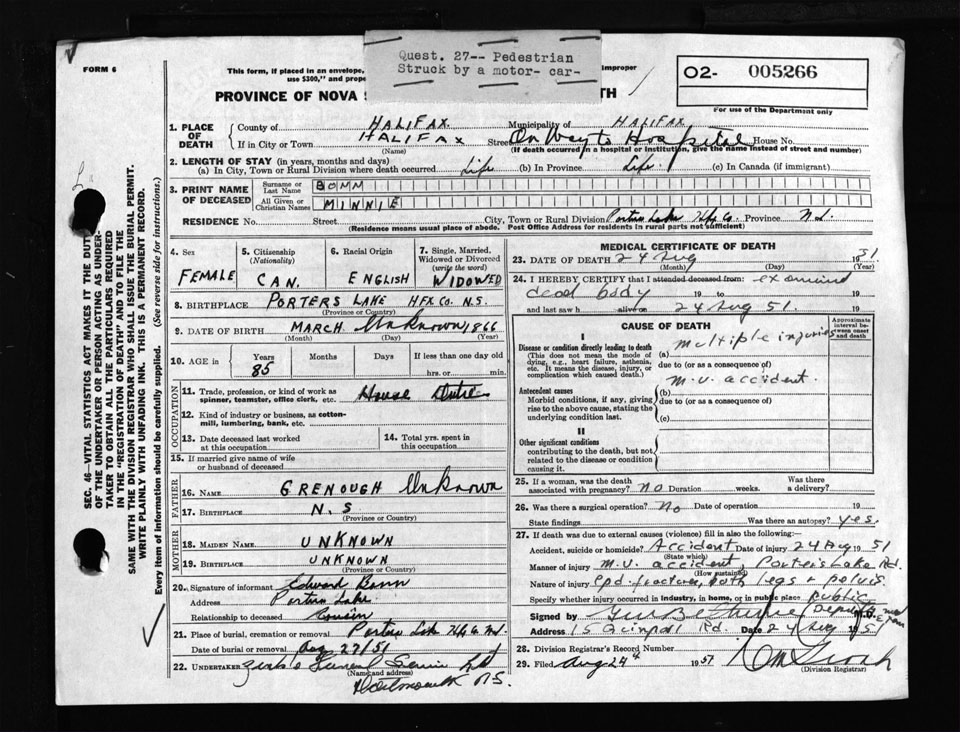 FORM 6
Quest. 27-- Pedestrian
Struck by a motor- car-
This form, if placed in an envelope,
improper
use $300," and
PROVINCE OF NOVA S
TH
O2- 005266
For use of the Department only
1. PLACE OF DEATH
County of HALIFAX Municipality of HALIFAX
If in City or Town HALIFAX Street On Way to Hospital House No.
(Name) (If death occurred in a hospital or institution, give the name instead of street and number)
2. LENGTH OF STAY (in years, months and days)
(a) In City, Town or Rural Division where death occurred Life (b) In Province Life. (c) In Canada (if immigrant)
3. PRINT NAME OF DECEASED
Surname or Last Name BONN
All Given or Christian Names MINNIE
RESIDENCE No. Street City, Town or Rural Division Porters Lake Hfx Co. Province N.S.
(Residence means usual place of abode. Post Office Address for residents in rural parts not sufficient)
4. Sex
FEMALE
5. Citizenship (Nationality)
CAN.
6. Racial Origin
ENGLISH
7. Single, Married, Widowed or Divorced (write the word)
WIDOWED
8. BIRTHPLACE PORTERS LAKE HFX Co. N.S.
(Province or Country)
9. DATE OF BIRTH MARCH Unknown 1866
(Month) (Day) (Year)
10. AGE in Years Months Days If less than one day old
85 hrs. or min.
OCCUPATION
11. Trade, profession, or kind of work as spinner, teamster, office clerk, etc. House Duties
12. Kind of industry or business, as cotton-mill, lumbering, bank, etc.
13. Date deceased last worked at this occupation
14. Total yrs. spent in this occupation
15. If married give name of wife or husband of deceased
FATHER
16. NAME GRENOUGH Unknown
17. BIRTHPLACE N.S
(Province or Country)
MOTHER
18. MAIDEN NAME UNKNOWN
19. BIRTHPLACE UNKNOWN
(Province or Country)
20. Signature of informant Edward Bonn
Address Porters Lake
Relationship to deceased Cousin
21. Place of burial, cremation or removal Porters Lake Hfx Co N.S.
Date of burial or removal Aug 27/51
22. UNDERTAKER Funeral Service Ltd
(Name and address)
Dartmouth N.S.
MEDICAL CERTIFICATE OF DEATH
23. DATE OF DEATH 24 Aug 1951
(Month) (Day) (Year)
24. I HEREBY CERTIFY that I attended deceased from: examined
dead body 19 to 19
and last saw h alive on 24 Aug 51. 19
CAUSE OF DEATH
Approximate interval between onset and death
I
Disease or condition directly leading to death
(This does not mean the mode of dying, e.g., heart failure, asthenia, etc. It means the disease, injury, or complication which caused death.)
(a) multiple injuries
due to (or as a consequence of)
m.v. accident.
Antecedent causes
Morbid conditions, if any, giving rise to the above cause, stating the underlying condition last.
(b)
due to (or as a consequence of)
(c)
II
Other significant conditions
contributing to the death, but not related to the disease or condition causing it.
25. If a woman, was the death associated with pregnancy? no Duration weeks. Was there a delivery?
26. Was there a surgical operation? No Date of operation 19
State findings Was there an autopsy? yes.
27. If death was due to external causes (violence) fill in also the following:
Accident, suicide or homicide? Accident Date of injury 24 Aug 1951
(State which)
Manner of injury m.v. accident, Porters Lake Rd.
(How sustained)
Nature of injury cpd. fracture, both legs + pelvis
Specify whether injury occurred in industry, in home, or in public place public
Signed by M.D.
Address 15 Quinpool Rd. Date 24 Aug 1951
28. Division Registrar's Record Number
29. Filed Aug 24 1951
(Division Registrar)
SEC. 46—VITAL STATISTICS ACT MAKES IT THE DUTY
OF THE UNDERTAKER OR PERSON ACTING AS UNDER-
TAKER TO OBTAIN ALL THE PARTICULARS REQUIRED
IN THE "REGISTRATION OF DEATH" AND TO FILE THE
SAME WITH THE DIVISION REGISTRAR WHO SHALL ISSUE THE BURIAL PERMIT.
WRITE PLAINLY WITH UNFADING INK. THIS IS A PERMANENT RECORD.
Every item of information should be carefully supplied. (See reverse side for instructions.)